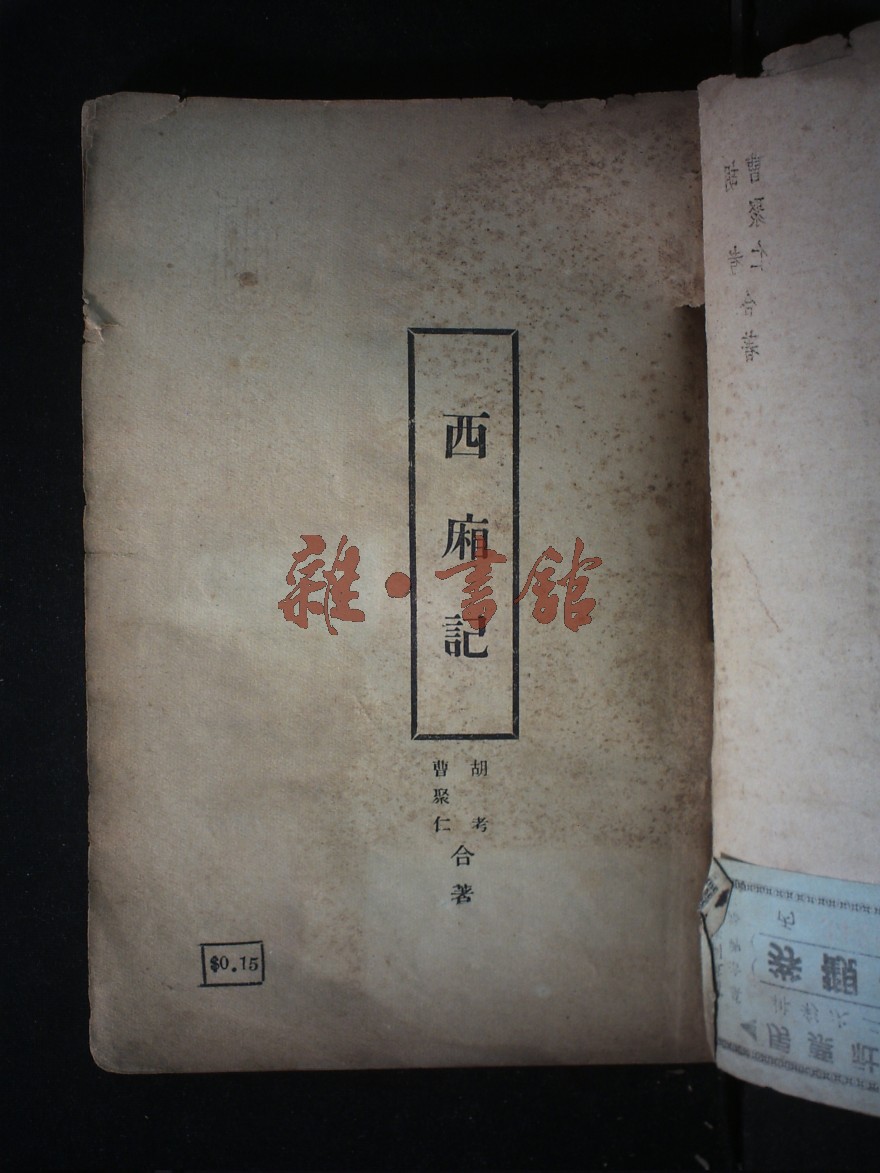 西廂記
胡考
曹聚仁
合著
$0.15
雜·書館
曹聚仁
胡考
合著